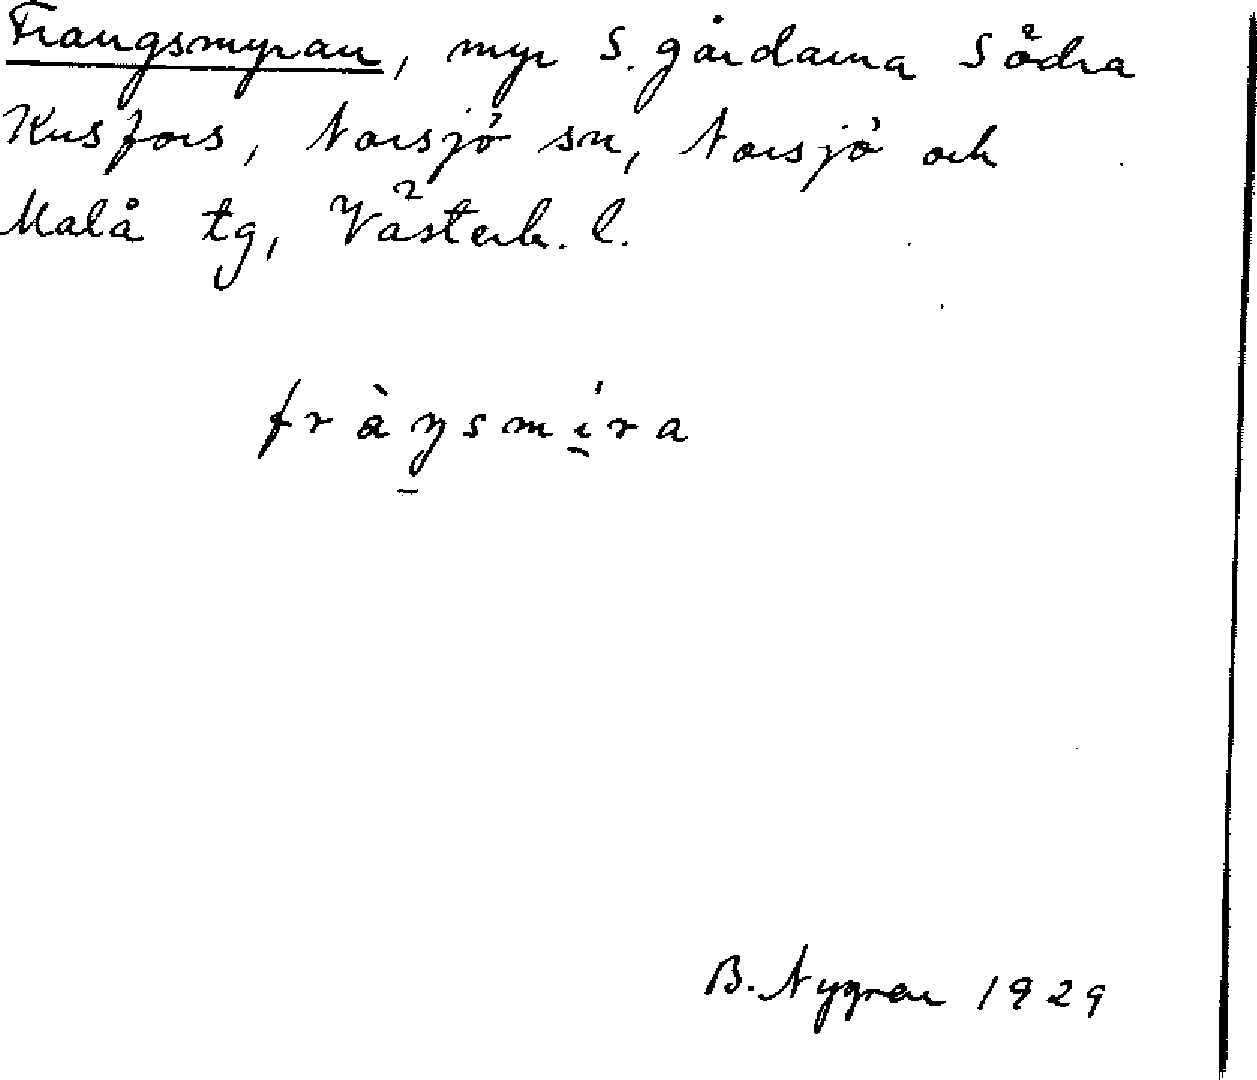 Frangsmyran, myr S. gårdarna Södra
Kusfors, Norsjö sn, Norsjö och
Malå tg, Västerb. l.
fràŋsmi̱ra
B. Nygren 1929